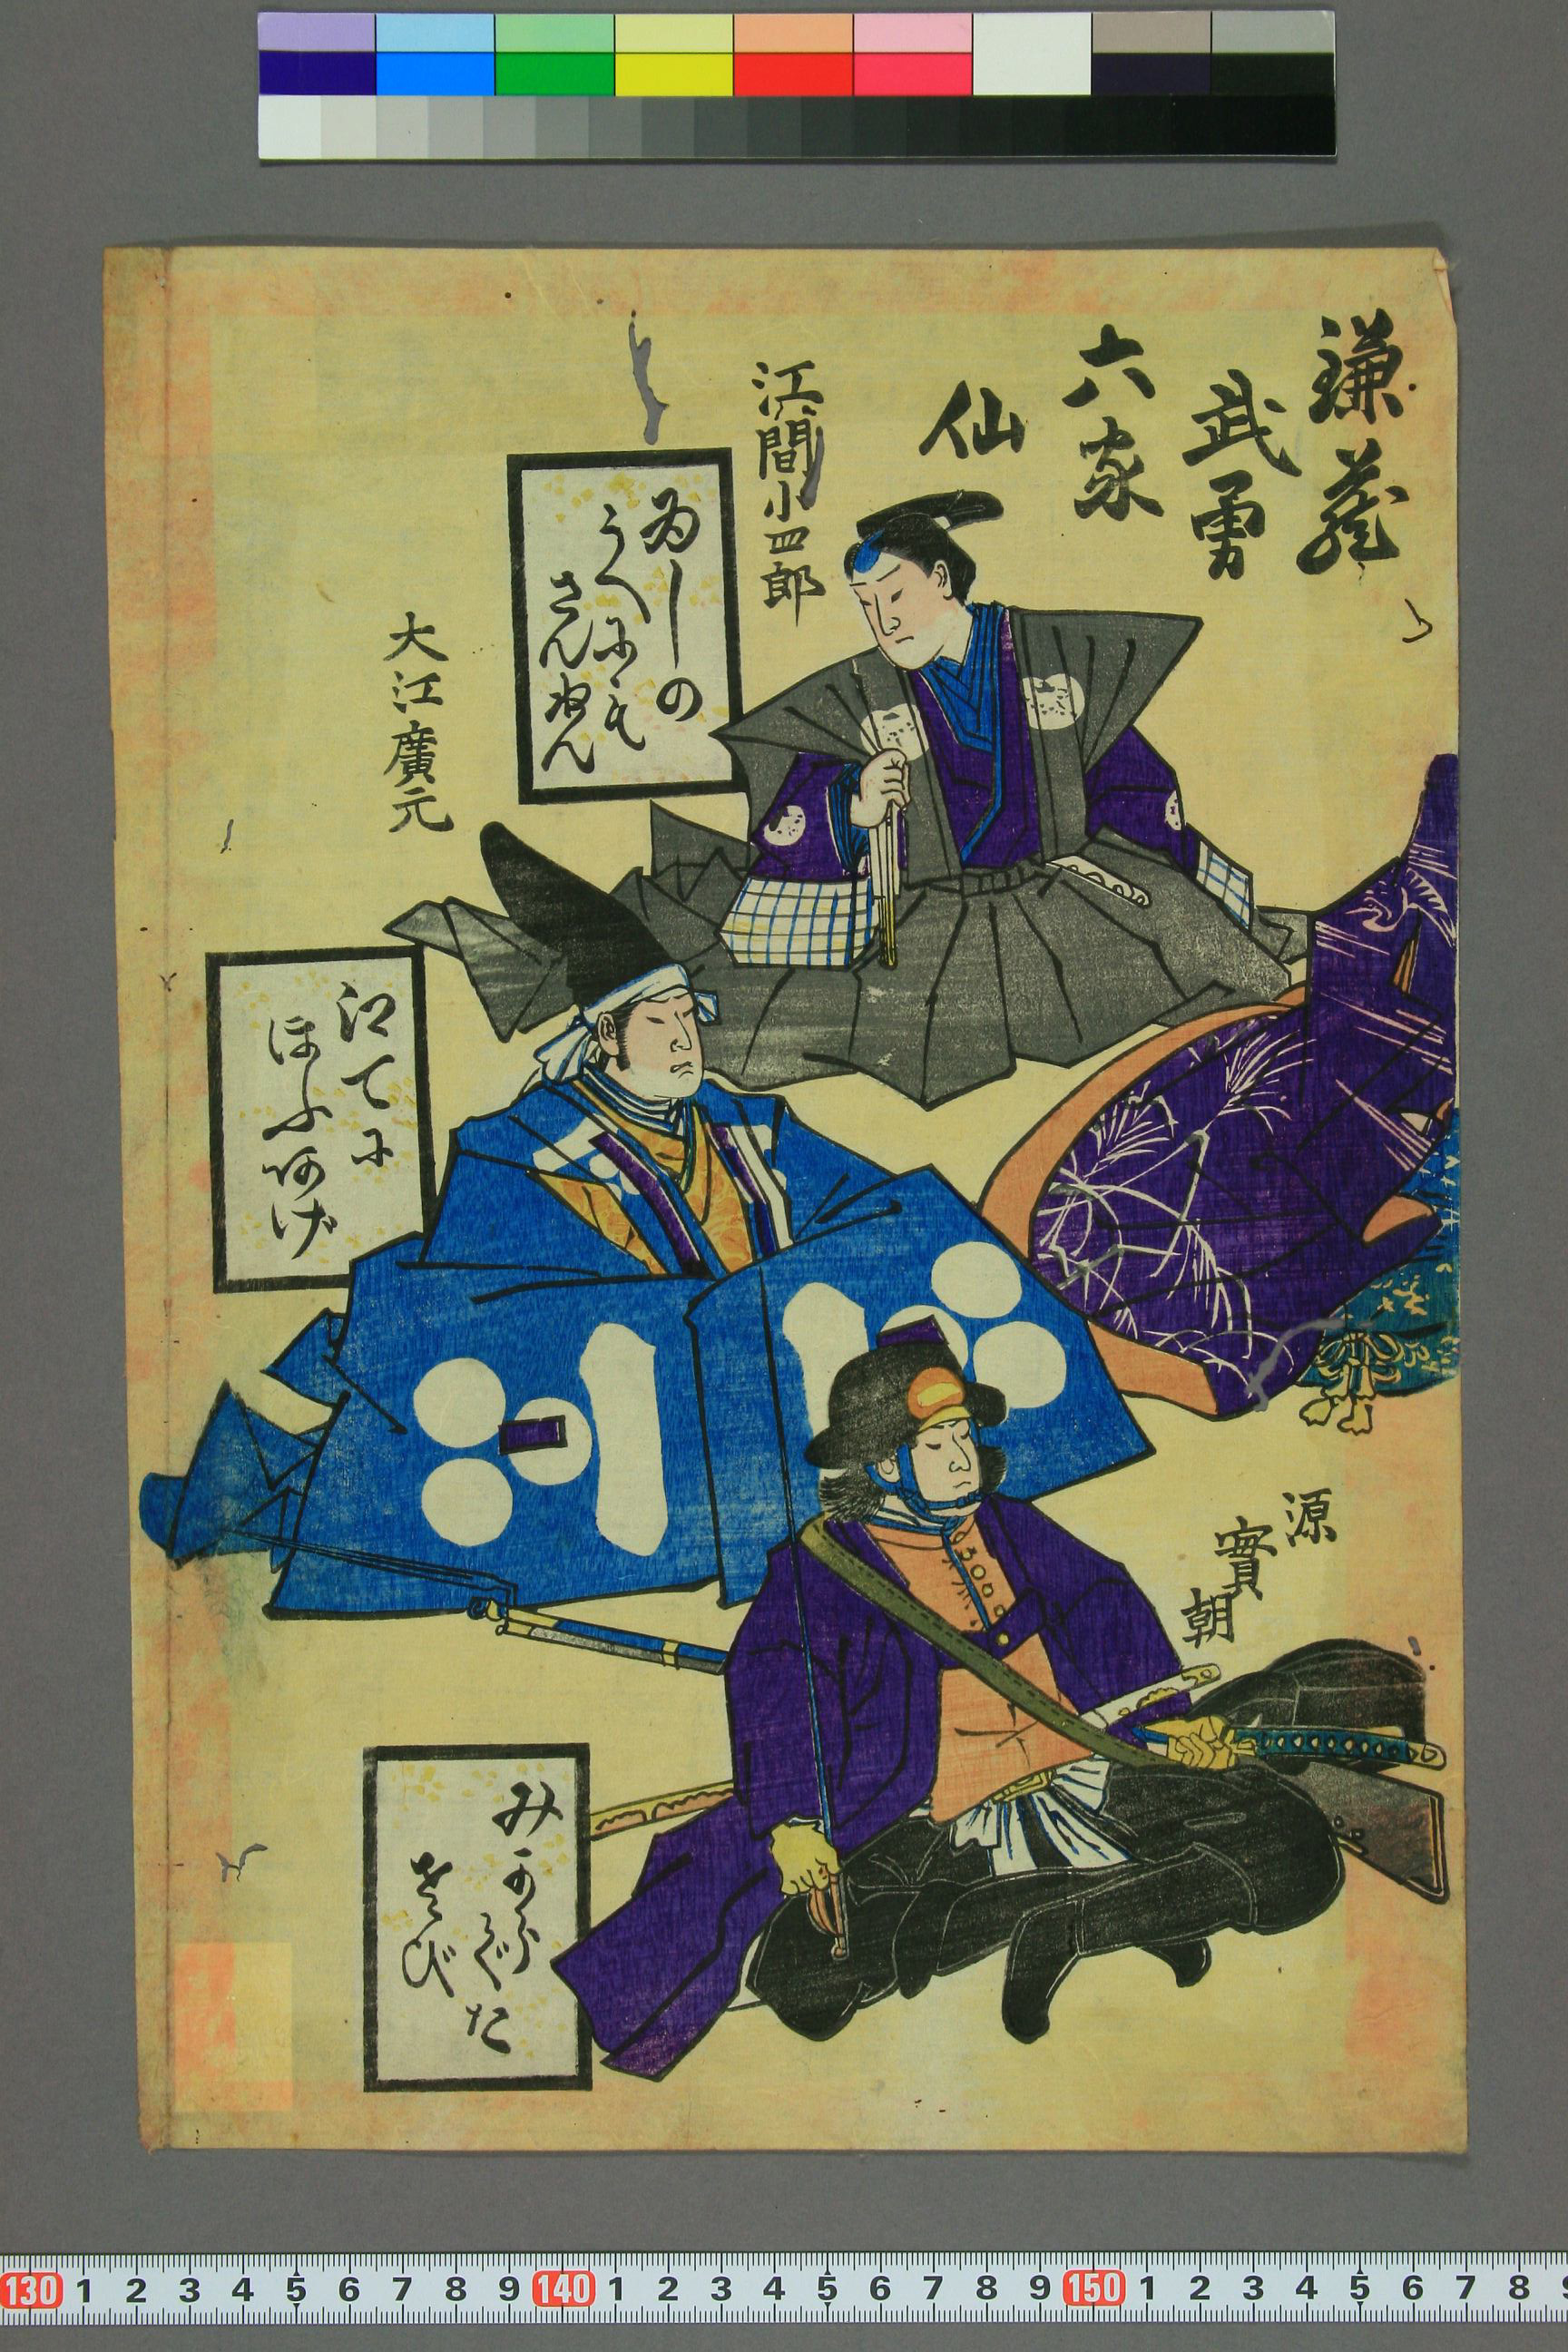 鎌蔵
武勇
六家
仙
江間小四郎
ゐしの
うへにも
さんねん
大江廣元
江てに
ほふあげ
源
實
朝
みからでた
さび
130 1 2 3 4 5 6 7 8 9 140 1 2 3 4 5 6 7 8 9 150 1 2 3 4 5 6 7 8